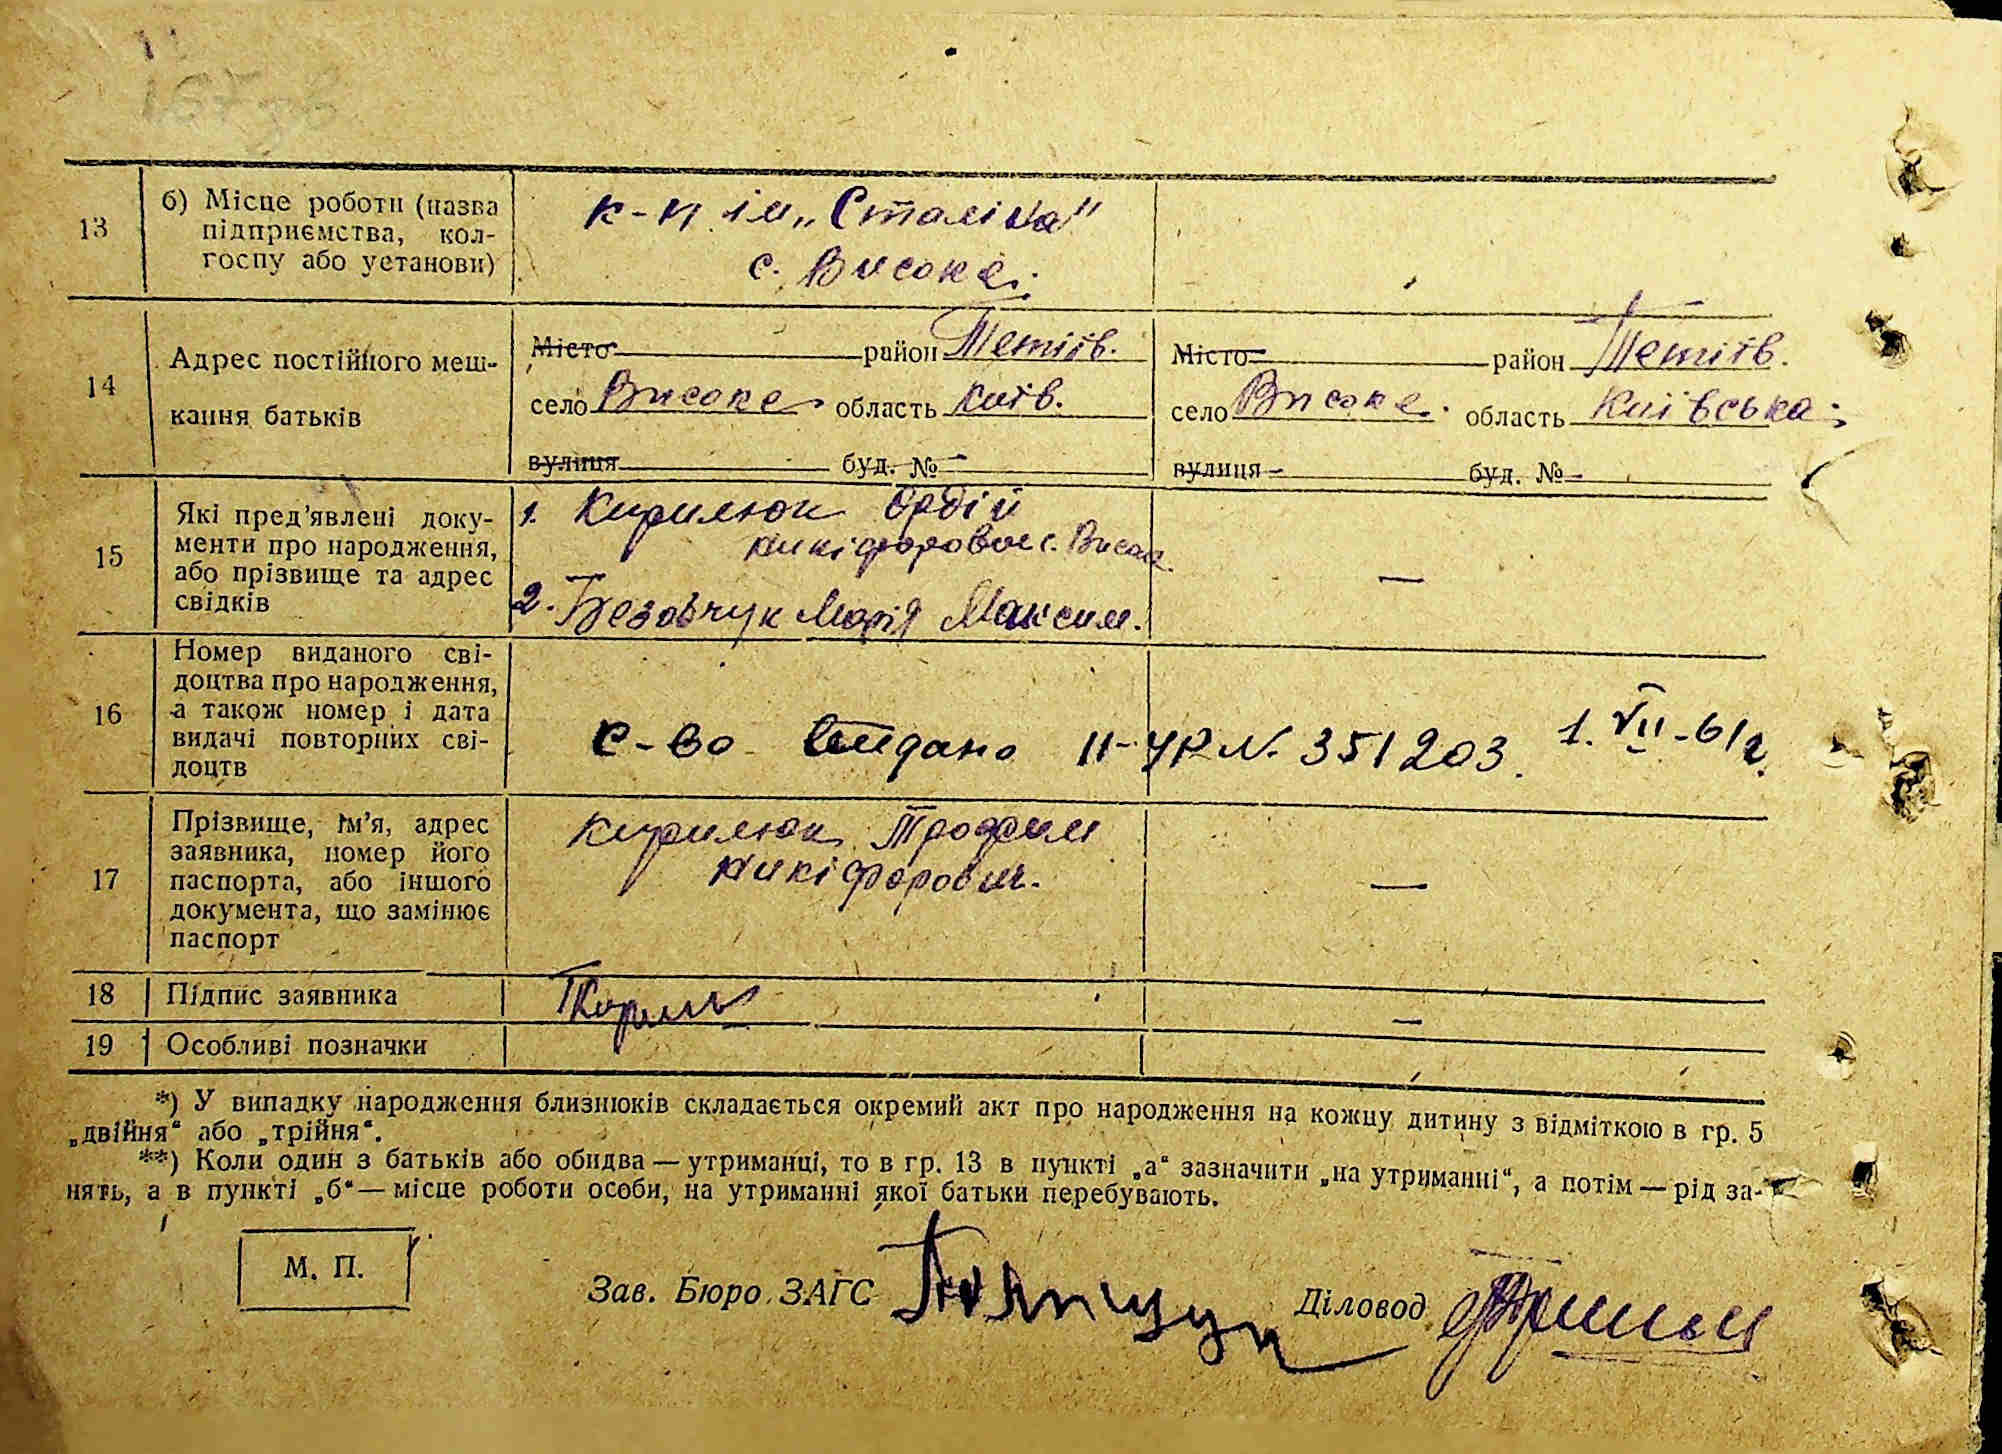 167 зв
13
б) Місце роботи (назва
підприємства, кол-
госпу або установи)
к-п ім „Сталіна"
с. Високе.
14
Адрес постійного меш-
кання батьків
Місто район Тетіїв.
село Високе область Київ.
вулиця буд. №
Місто район Тетіїв.
село Високе. область Київська
вулиця буд. №
15
Які пред'явлені доку-
менти про народження,
або прізвище та адрес
свідків
1. Кирилюк
Никіфорович с. Високе.
2. Безовчук Марія Максим.
—
16
Номер виданого сві-
доцтва про народження,
а також номер і дата
видачі повторних сві-
доцтв
с-во видано II-УР N. 351203. 1. VII-61г.
17
Прізвище, ім'я, адрес
заявника, номер його
паспорта, або іншого
документа, що замінює
паспорт
Кирилюк Трофим
Никіфорович.
—
18
Підпис заявника
—
19
Особливі позначки
*) У випадку народження близнюків складається окремий акт про народження на кожну дитину з відміткою в гр. 5
„двійня" або „трійня".
**) Коли один з батьків або обидва — утриманці, то в гр. 13 в пункті „а" зазначити „на утриманні", а потім — рід за-
нять, а в пункті „б" — місце роботи особи, на утриманні якої батьки перебувають.
М. П.
Зав. Бюро ЗАГС
Діловод